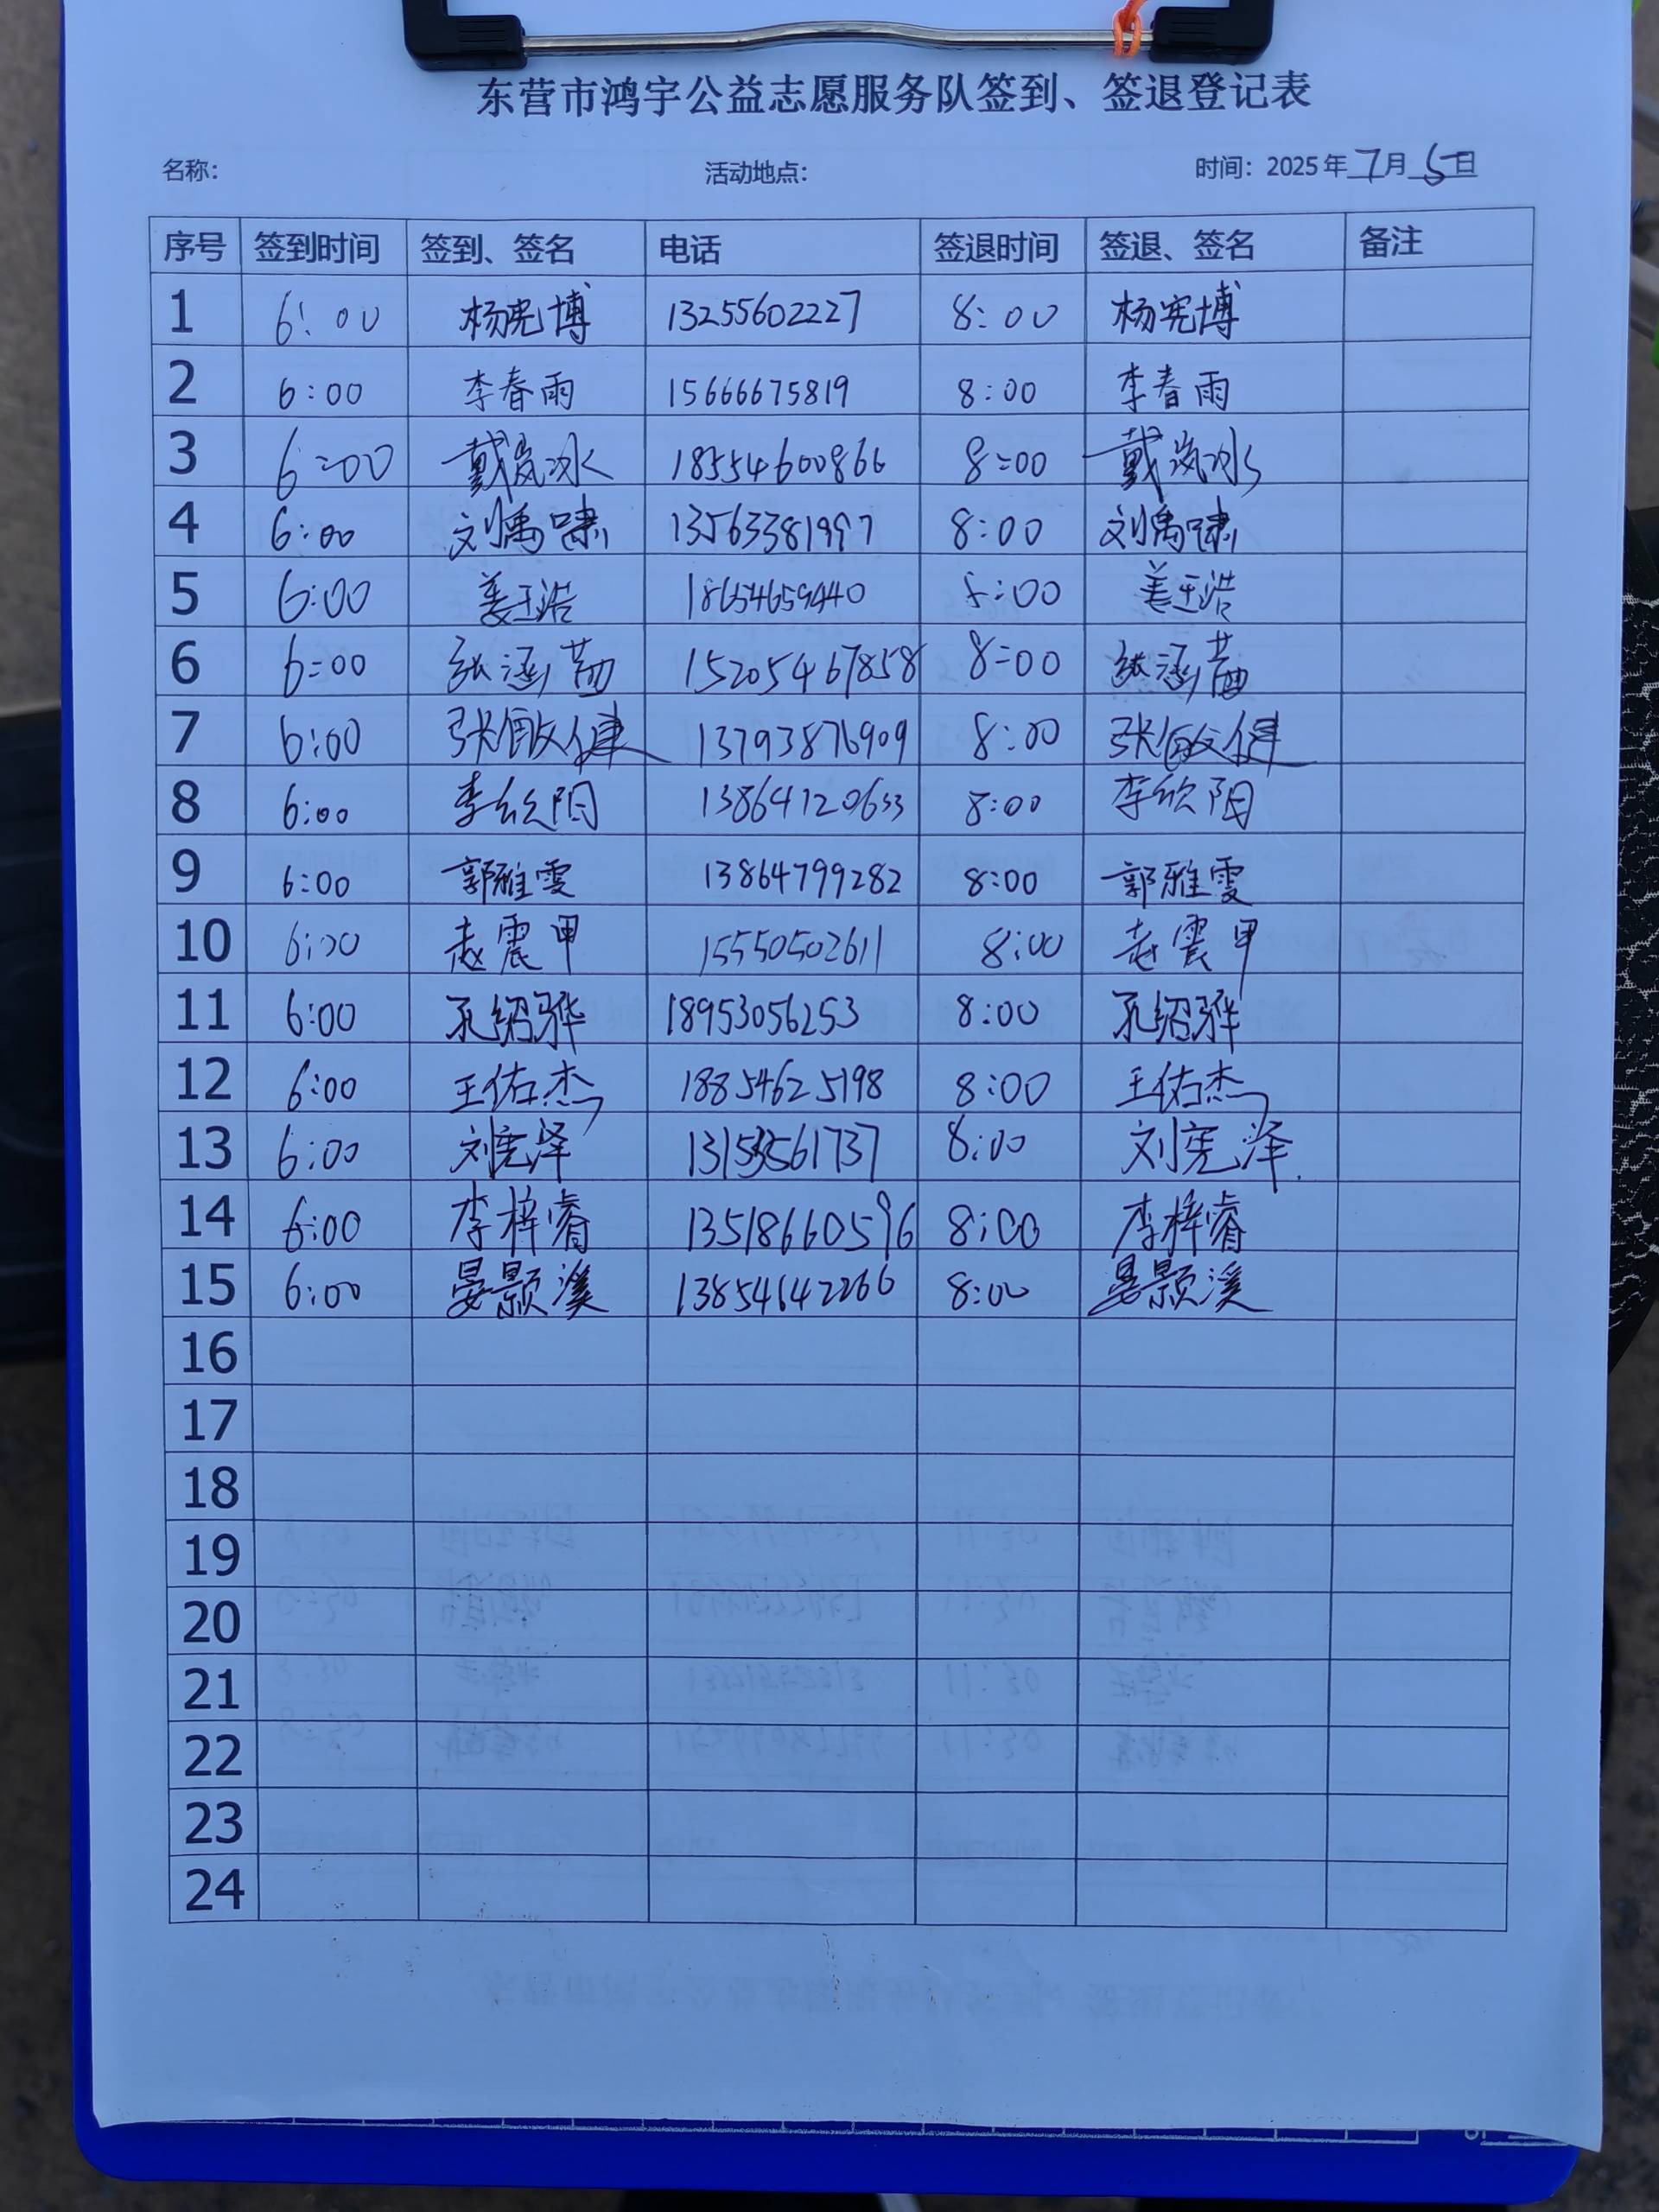 东营市鸿宇公益志愿服务队签到、签退登记表
名称： 活动地点： 时间：2025年7月5日
序号 签到时间 签到、签名 电话 签退时间 签退、签名 备注
1 6:00 杨宪博 13255602227 8:00 杨宪博
2 6:00 李春雨 15666675819 8:00 李春雨
3 6:00 戴岚冰 18554600866 8:00 戴岚冰
4 6:00 刘禹啸 13563381997 8:00 刘禹啸
5 6:00 姜玉浩 18654659440 8:00 姜玉浩
6 6:00 张涵 15205467858 8:00 张涵
7 6:00 张 健 13793876909 8:00 张 健
8 6:00 李欣阳 13864120633 8:00 李欣阳
9 6:00 郭雅雯 13864799282 8:00 郭雅雯
10 6:00 赵震甲 15550502611 8:00 赵震甲
11 6:00 孔绍骅 18953056253 8:00 孔绍骅
12 6:00 王佑杰 18854625198 8:00 王佑杰
13 6:00 刘宪泽 8:00 刘宪泽
14 6:00 李梓睿 13518660596 8:00 李梓睿
15 6:00 晏颢溪 13854642266 8:00 晏颢溪
16
17
18
19
20
21
22
23
24